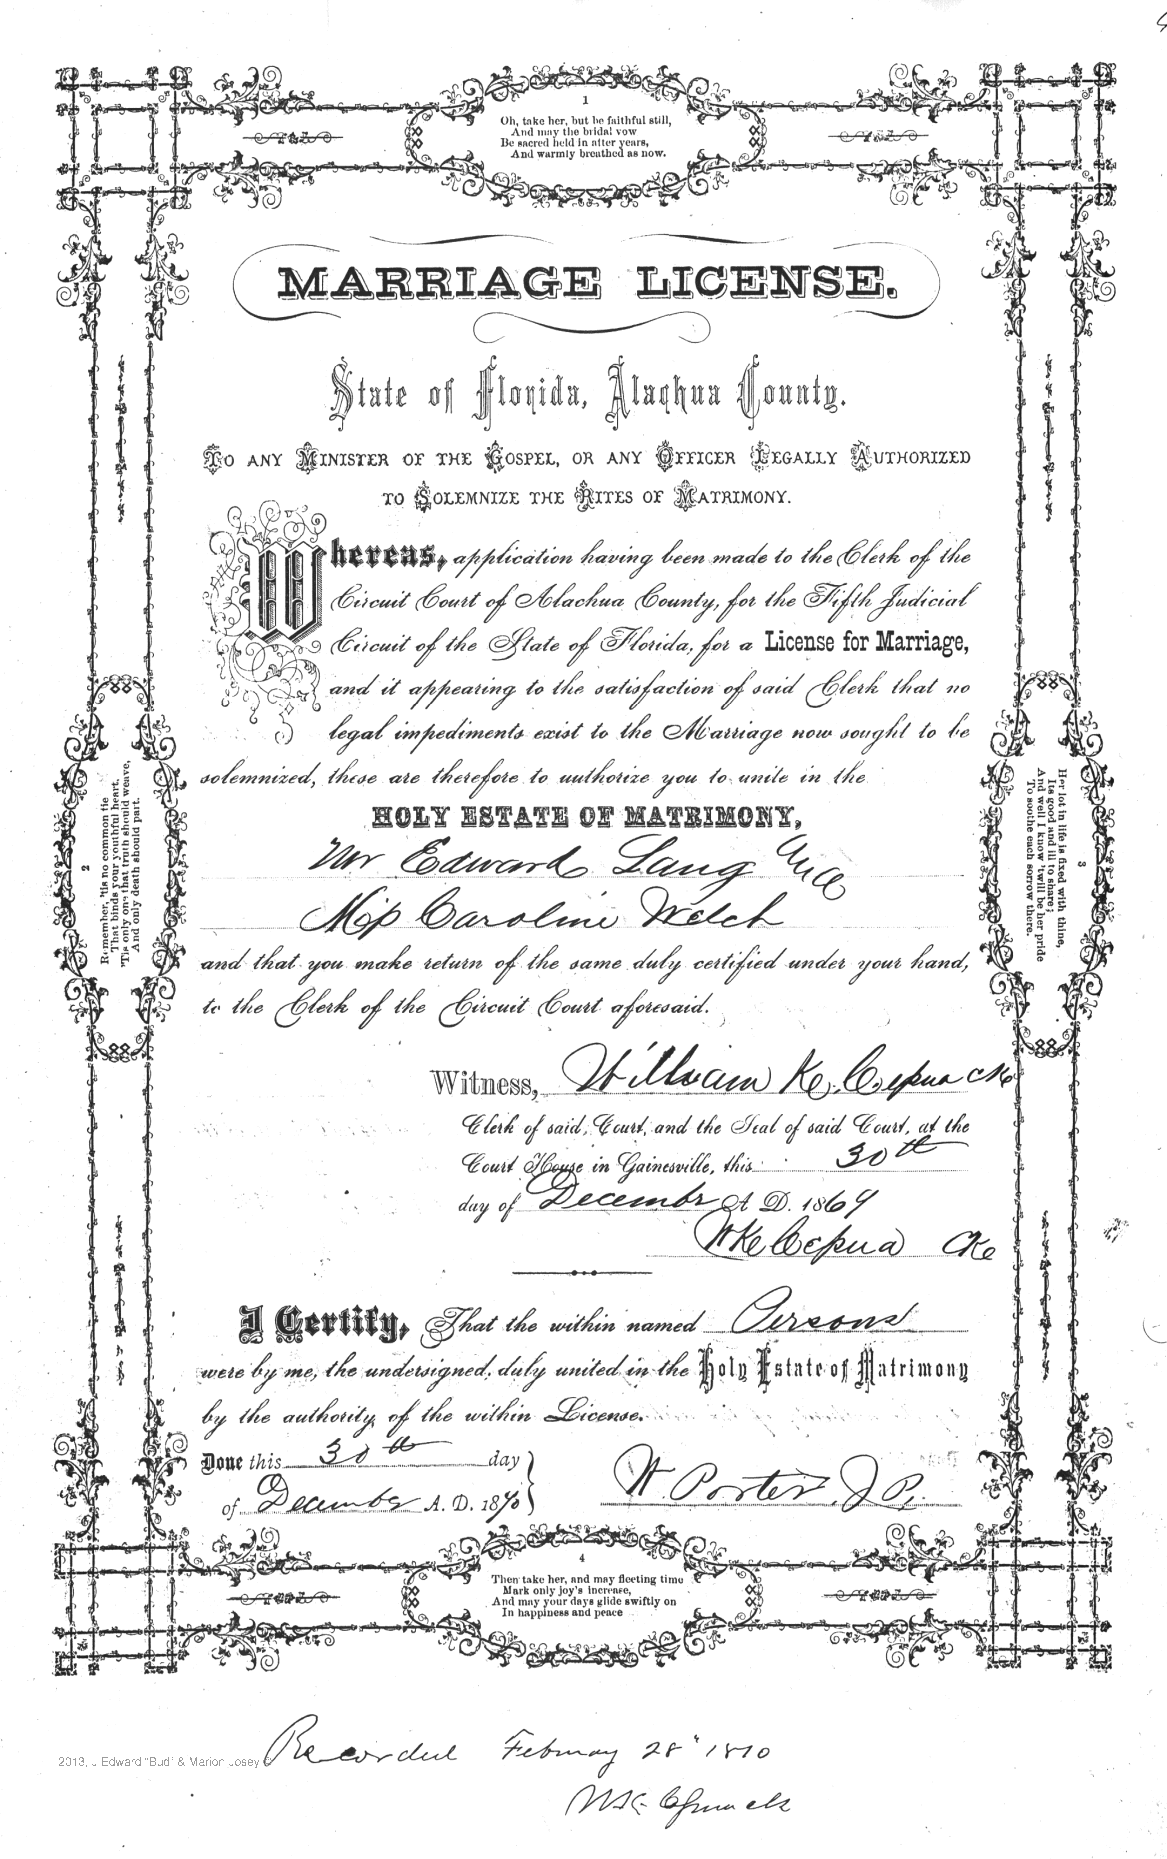 1
Oh, take her, but be faithful still,
And may the bridal vow
Be sacred held in after years,
And warmly breathed as now.
MARRIAGE LICENSE.
State of Florida, Alachua County.
TO ANY MINISTER OF THE GOSPEL, OR ANY OFFICER LEGALLY AUTHORIZED
TO SOLEMNIZE THE RITES OF MATRIMONY.
Whereas, application having been made to the Clerk of the
Circuit Court of Alachua County, for the Fifth Judicial
Circuit of the State of Florida, for a License for Marriage,
and it appearing to the satisfaction of said Clerk that no
legal impediments exist to the Marriage now sought to be
solemnized, these are therefore to authorize you to unite in the
HOLY ESTATE OF MATRIMONY,
Mr Edward Lang and
Miss Caroline Welch
and that you make return of the same duly certified under your hand,
to the Clerk of the Circuit Court aforesaid.
2
Remember, 'tis no common tie
That binds your youthful heart,
'Tis only one that truth should weave,
And only death should part.
3
Her lot in life is fixed with thine,
Its good and ill to share;
And well I know 'twill be her pride
To soothe each sorrow there.
Witness, William K.
Clerk of said Court, and the Seal of said Court, at the
Court House in Gainesville, this 30th
day of December A D. 1869
I Certify, That the within named Persons
were by me, the undersigned, duly united in the Holy Estate of Matrimony
by the authority of the within License.
Done this 30th day
of December A. D. 1870
W. Porter J P.
4
Then take her, and may fleeting time
Mark only joy's increase,
And may your days glide swiftly on
In happiness and peace
Recorded February 28" 1870
2013, J Edward "Bud" & Marion Josey ©